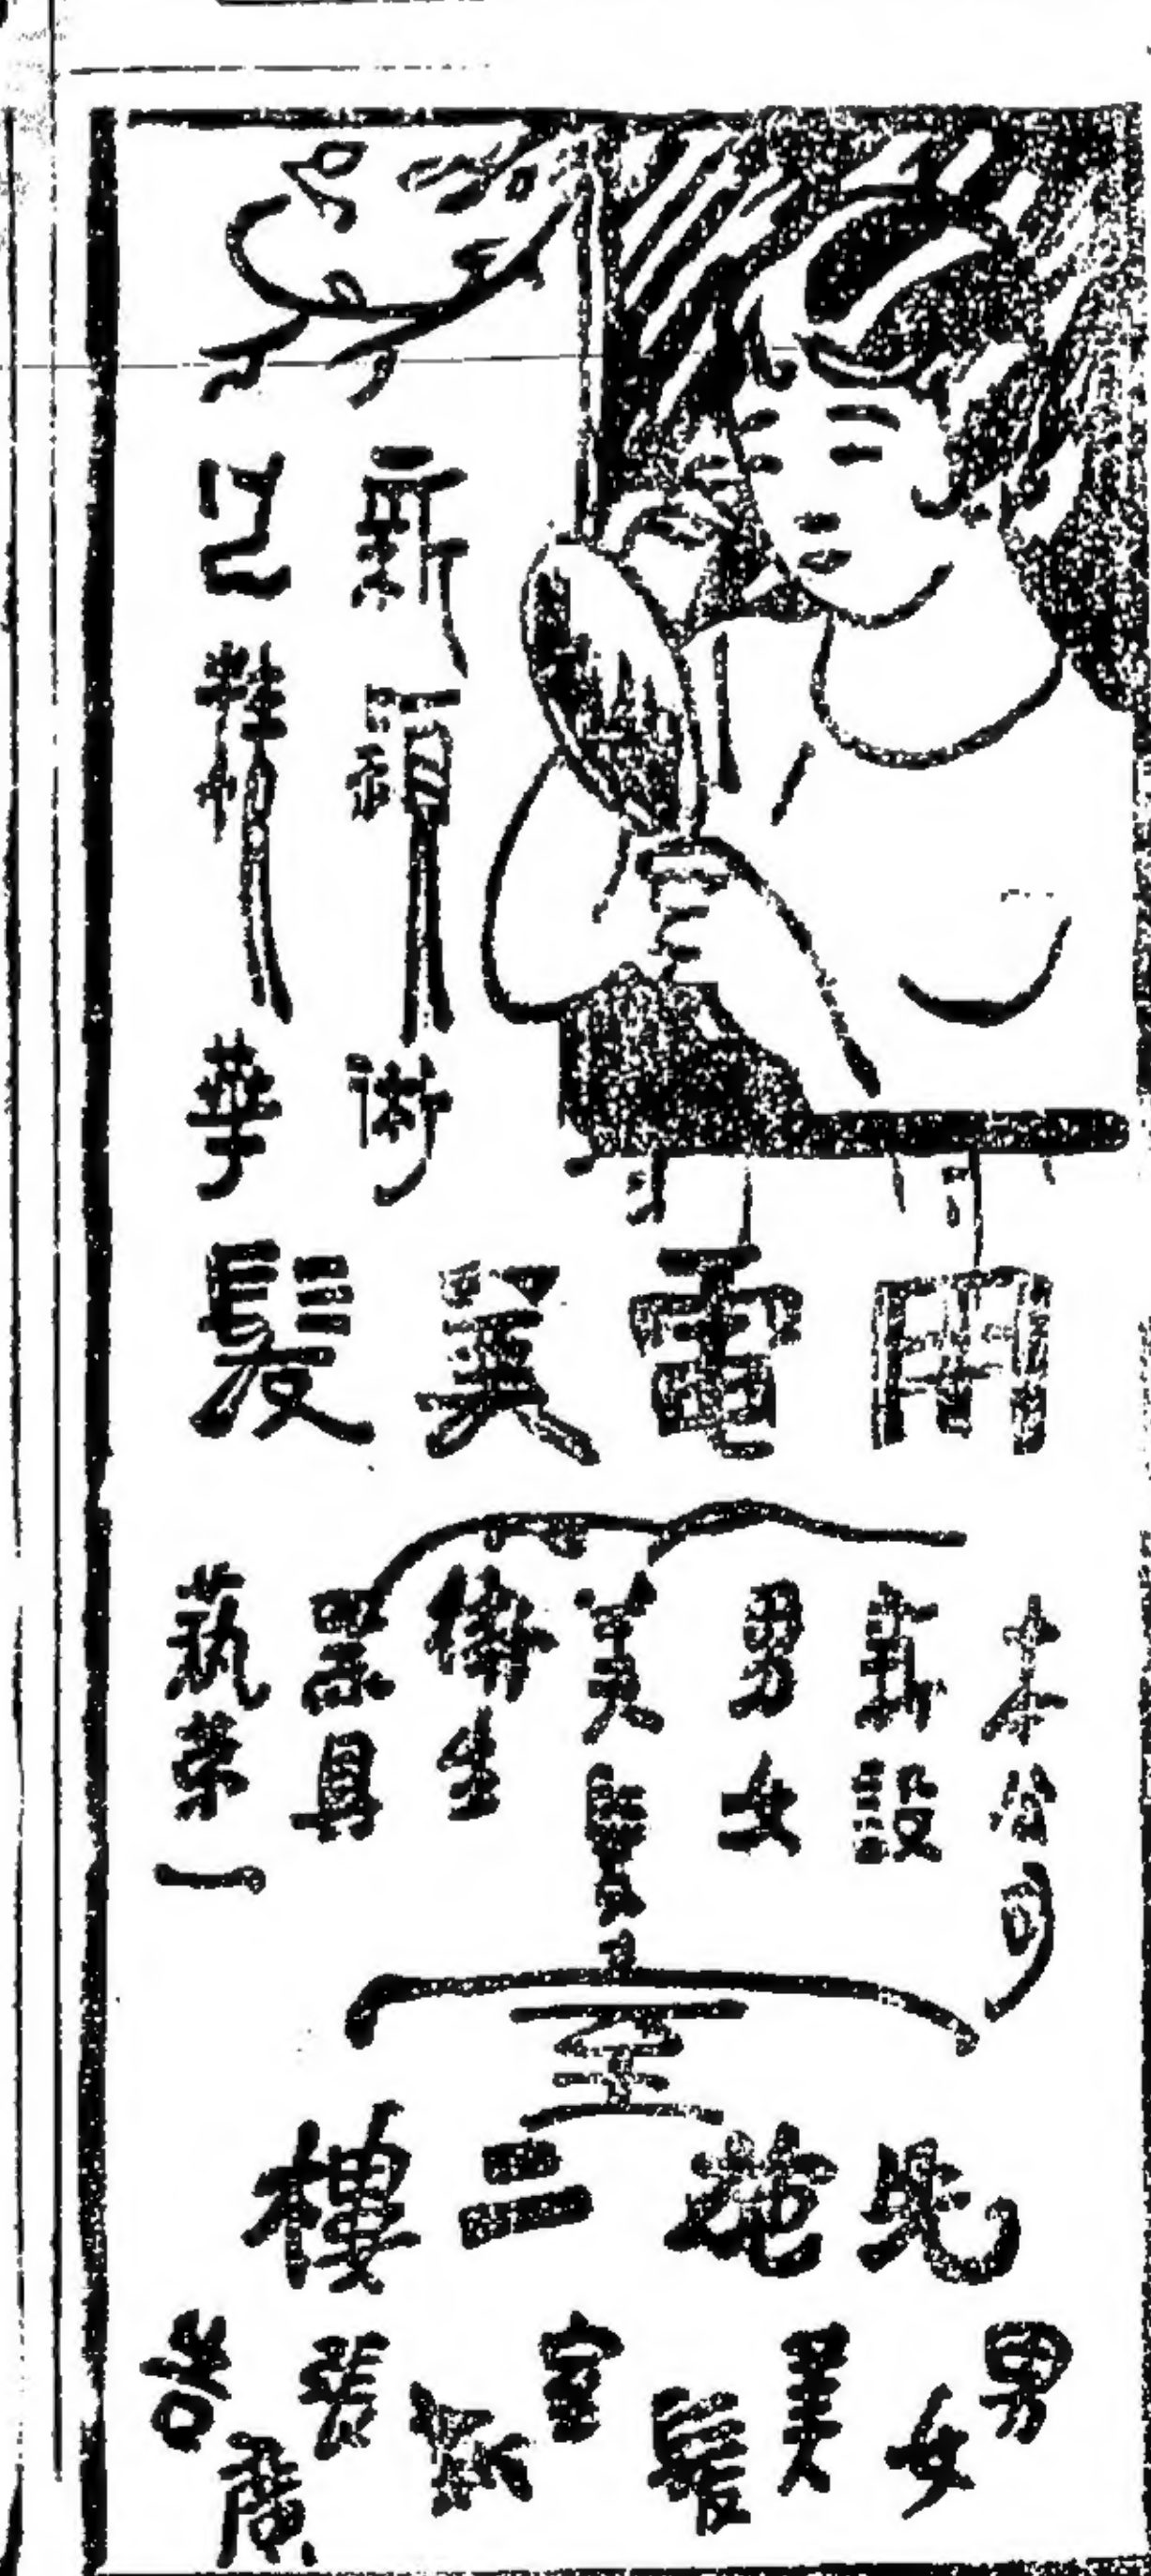 新穎術
精華
用電髮
本公司
新設
男女
美髮室
衛生
器具
藝一
先施二樓
男女美髮室新張廣告